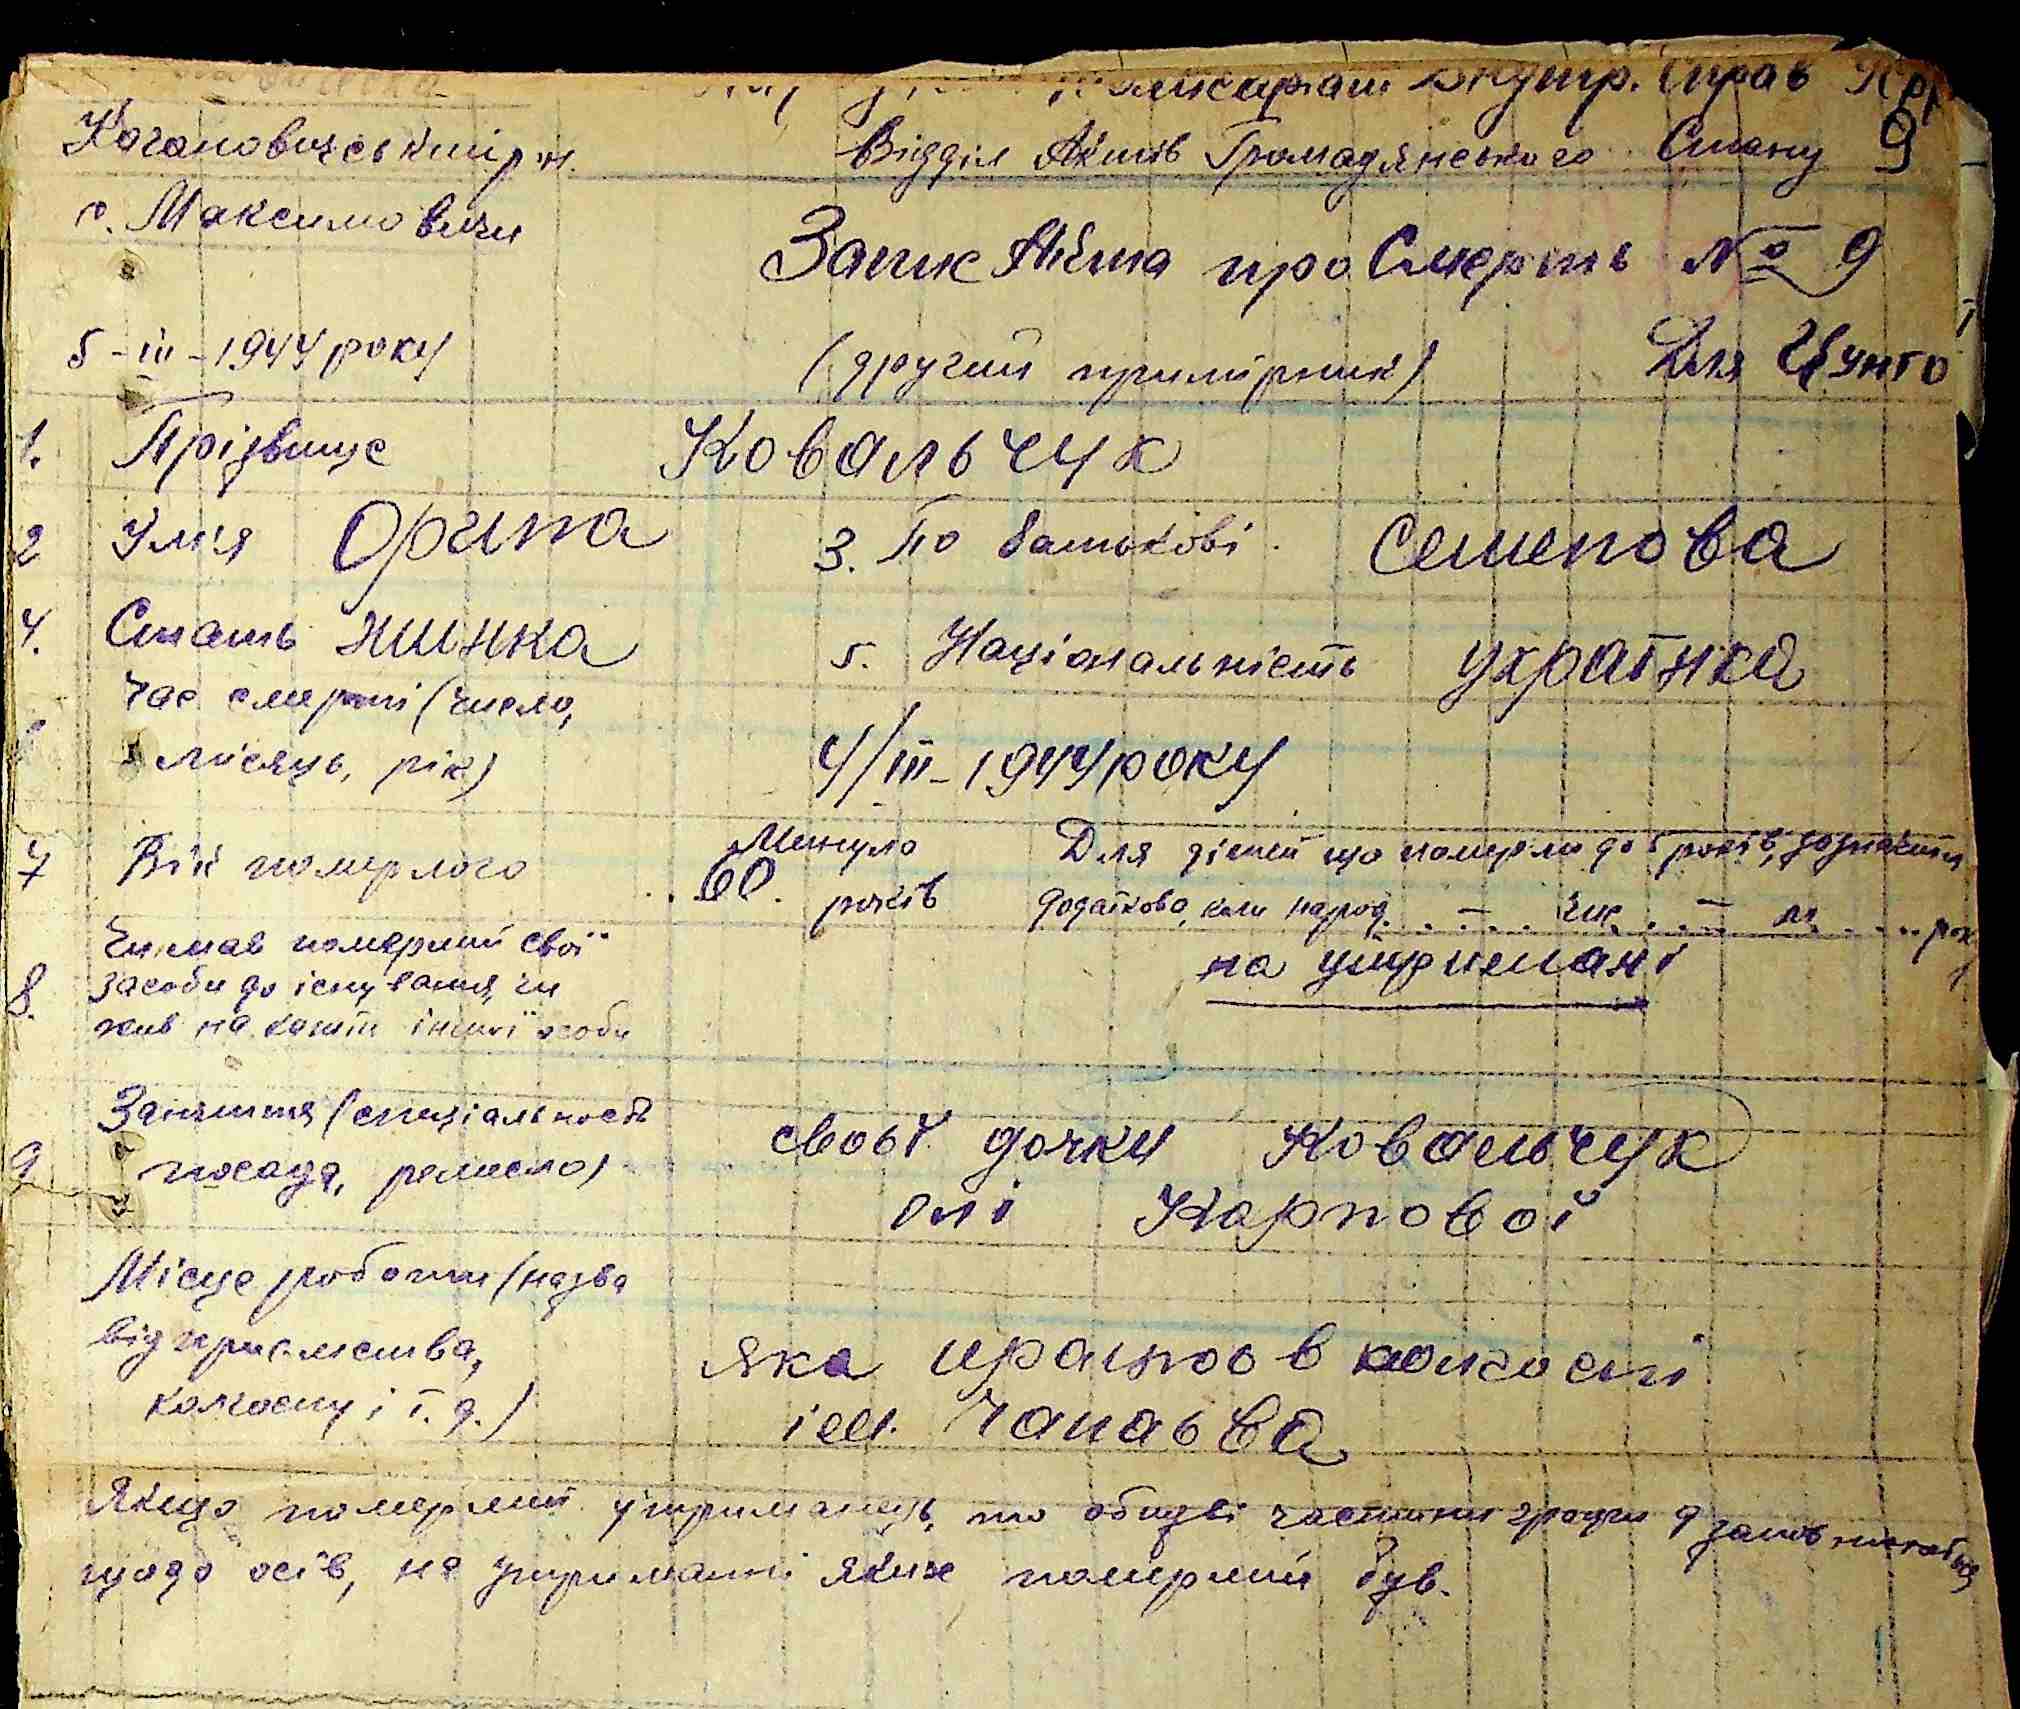 Комісаріат Внутр. Справ
Кагановичський р-н. Відділ Актів Громадянського Стану 9
с. Максимовичи
Запис Акта про Смерть № 9
5-III-1944 року (другий примірник) Для
1. Прізвище Ковальчук
2 Імя Орина 3. По батькові Семенова
4. Стать жинка 5. Національність украінка
Час смерті (число,
місяць, рік) 4/III-1944 року
7 Вік померлого Минуло 60 років Для дітей що померли до 5 років, зазначити
додатково, коли народ. . . – . . . чис. . . – . . м. . . . . року
8. Чи мав померлий свої
засоби до існування, чи
жив на кошти іншої особи на утриемані
9 Заняття (спеціальность
посада, ремесло) своьї дочки Ковальчук
олі Карповоі
Місце роботи (назва
відприємства,
колхоспу і т. д.) яка працюь в колхоспі
ім. Чапаьва
Якщо померлий утриманець, то обидві частини графи 9 заповнюються
щодо осів, на утриманні яких померлий був.